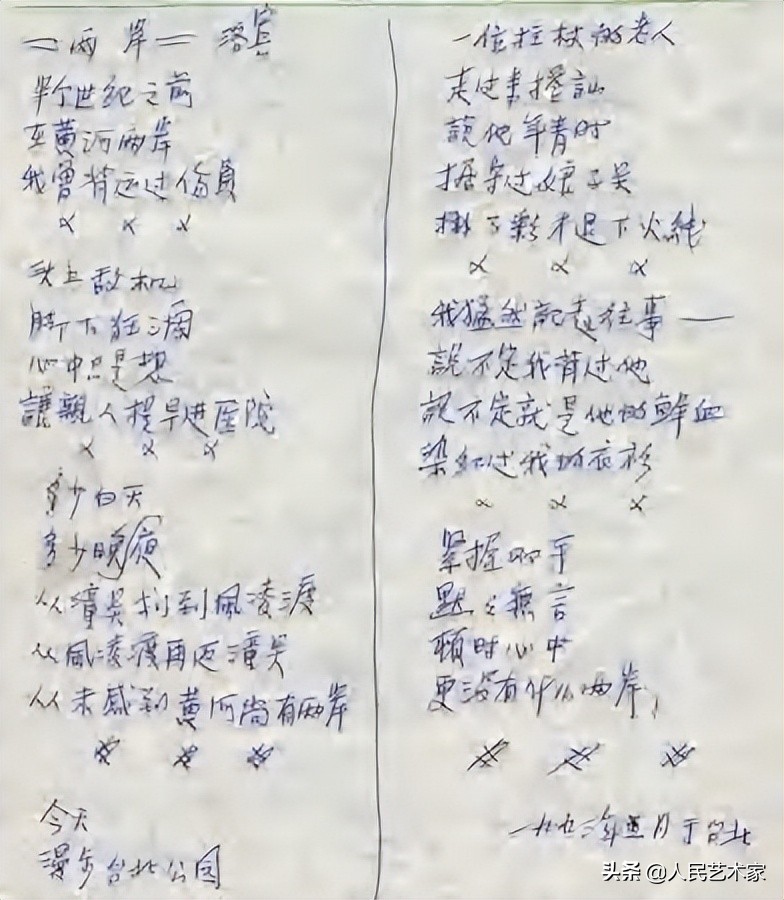 =两岸= 洛宾
半个世纪之前
在黄河两岸
我曾背运过伤員
x x x
头上敌机
脚下狂澜
心中只是想
讓親人提早进医院
x x x
多少白天
多少晚夜
从潼关划到風凌渡
从風凌渡再返潼关
从未感到黄河尚有两岸
今天
漫步台北公园
一位拄杖的老人
走过来搭訕
說他年青时
据守过娘子关
掛了彩才退下火綫
x x x
我猛然記起往事——
說不定我背过他
說不定就是他的鲜血
染红过我的衣衫
x x x
紧握双手
默々無言
頓时心中
更没有什么两岸
年五月于台北
头条 @人民艺术家